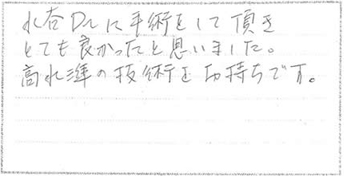 水谷Drに手術をして頂き
とても良かったと思いました。
高水準の技術をお持ちです。